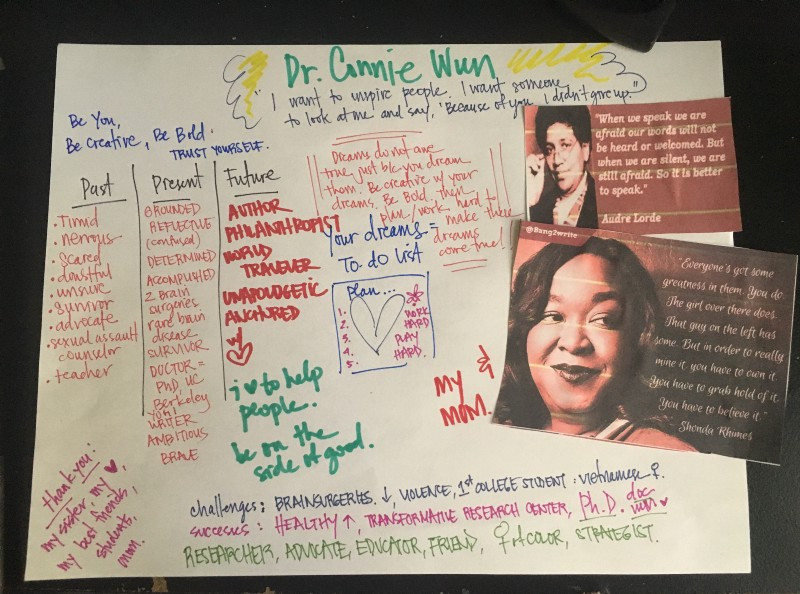 Dr. Connie Wun
"I want to inspire people. I want someone
to look at me and say, "Because of you I didn't give up."
Be You,
Be Creative, Be Bold.
TRUST YOURSELF.
Past
• Timid
• nervous
• Scared
• doubtful
• unsure
• survivor
• advocate
• sexual assault
counselor
• teacher
Present
GROUNDED
REFLECTIVE
(confused)
DETERMINED
ACCOMPLISHED
2 Brain
surgeries.
rare brain
disease
SURVIVOR
DOCTOR =
PhD, UC
Berkeley
WRITER
AMBITIOUS
BRAVE
Future
AUTHOR
PHILANTHROPIST
WORLD
TRAVELER
UNAPOLOGETIC
ANCHORED
w/
i ♥ to help
people.
be on the
side of good.
Dreams do not come
true just b/c you dream
them. Be creative w/ your
dreams. Be Bold. Then
plan/work hard to
make these
dreams
come true!!
Your dreams =
To-do list
plan...
1.
2.
3.
4.
5.
WORK
HARD
PLAY
HARD.
&
MY
MOM.
"When we speak we are
afraid our words will not
be heard or welcomed. But
when we are silent, we are
still afraid. So it is better
to speak."
Audre Lorde
@Bang2write
"Everyone's got some
greatness in them. You do.
The girl over there does.
That guy on the left has
some. But in order to really
mine it, you have to own it.
You have to grab hold of it.
You have to believe it."
Shonda Rhimes
thank you:
my sister, my ♥,
my best friends,
students,
mom.
challenges: BRAIN SURGERIES, ↓, VIOLENCE, 1st COLLEGE STUDENT: vietnamese ♀.
successes: HEALTHY ↑, TRANSFORMATIVE RESEARCH CENTER, Ph.D. doc wun ♥
RESEARCHER, ADVOCATE, EDUCATOR, FRIEND, ♀ of color, STRATEGIST.